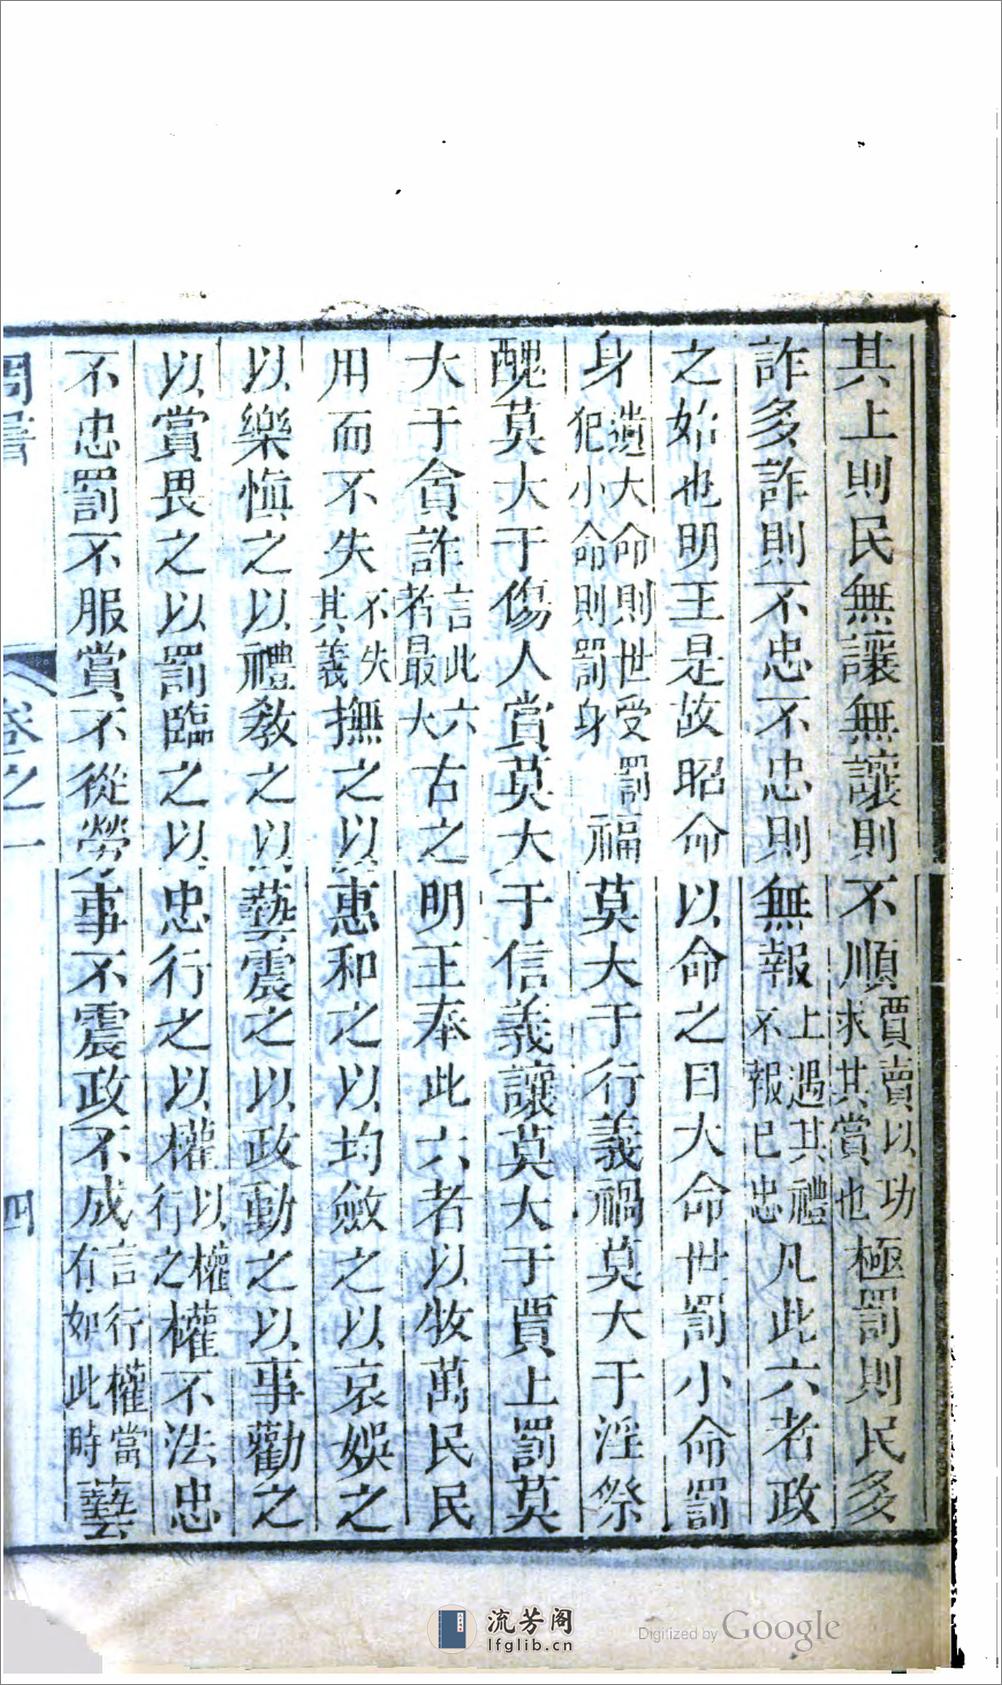 其上則民無讓無讓則不順賈賣以功求其賞也極罰則民多
詐多詐則不忠不忠則無報上遇其禮不報已忠凡此六者政
之始也明王是故昭命以命之曰大命世罰小命罰
身遺大命則世受罰犯小命則罰身福莫大于行義禍莫大于淫祭
醜莫大于傷人賞莫大于信義讓莫大于賈上罰莫
大于貪詐言此六者最大古之明王奉此六者以牧萬民民
用而不失不失其義撫之以惠和之以均斂之以哀娛之
以樂愼之以禮教之以藝震之以政動之以事勸之
以賞畏之以罰臨之以忠行之以權以權行之權不法忠
不忠罰不服賞不從勞事不震政不成言行權當有如此時藝
周書 卷之一 四
流芳阁
lfglib.cn
Digitized by Google